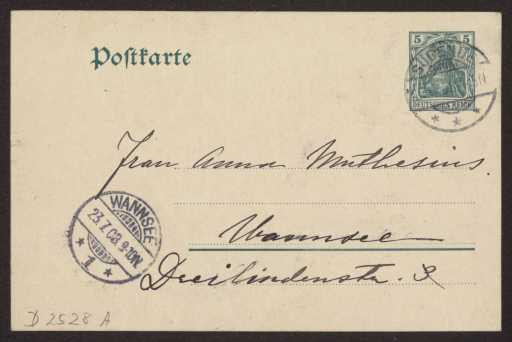 Postkarte
5 5
DEUTSCHES REICH
Frau Anna Muthesius.
WANNSEE
23.7.08.9-10N.
*1*
Wannsee
Dreilindenstr.
D 2528 A